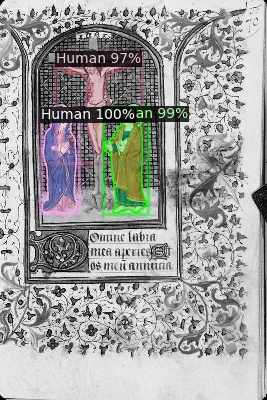 Human 97%
Human 100%an 99%
Domine labia
mea aperies Et
os meū annuncia